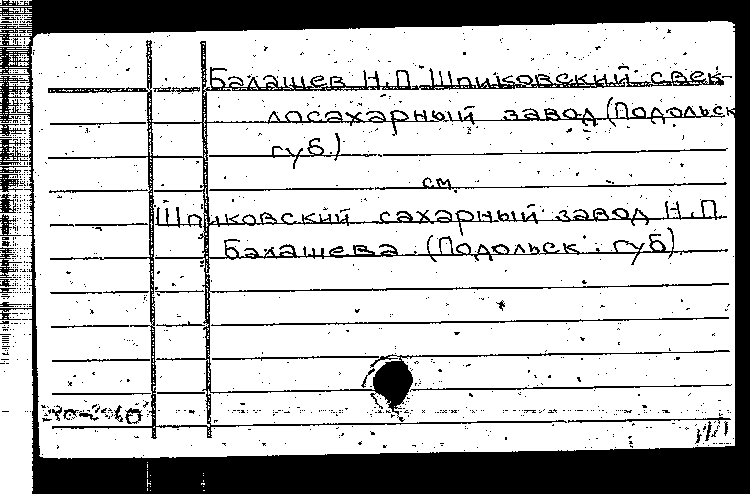 Балашев Н.П. Шпиковский свек-
лосахарный завод (Подольск
губ.)
см.
Шпиковский сахарный завод Н.П.
Балашева (Подольск. губ)